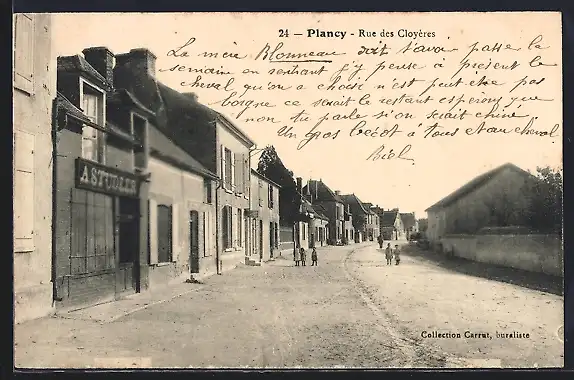 24 - Plancy - Rue des Cloyères
La mère Blonneau doit t'avoir passe la
semaine en rentrant j'y pense à présent le
cheval qu'on a choisi n'est peut-être pas
borgne ce serait le restant espérons que
non tu parle si on serait chine
Un gros bécot à tous et au cheval
ASTUDLER
Collection Carrat, buraliste